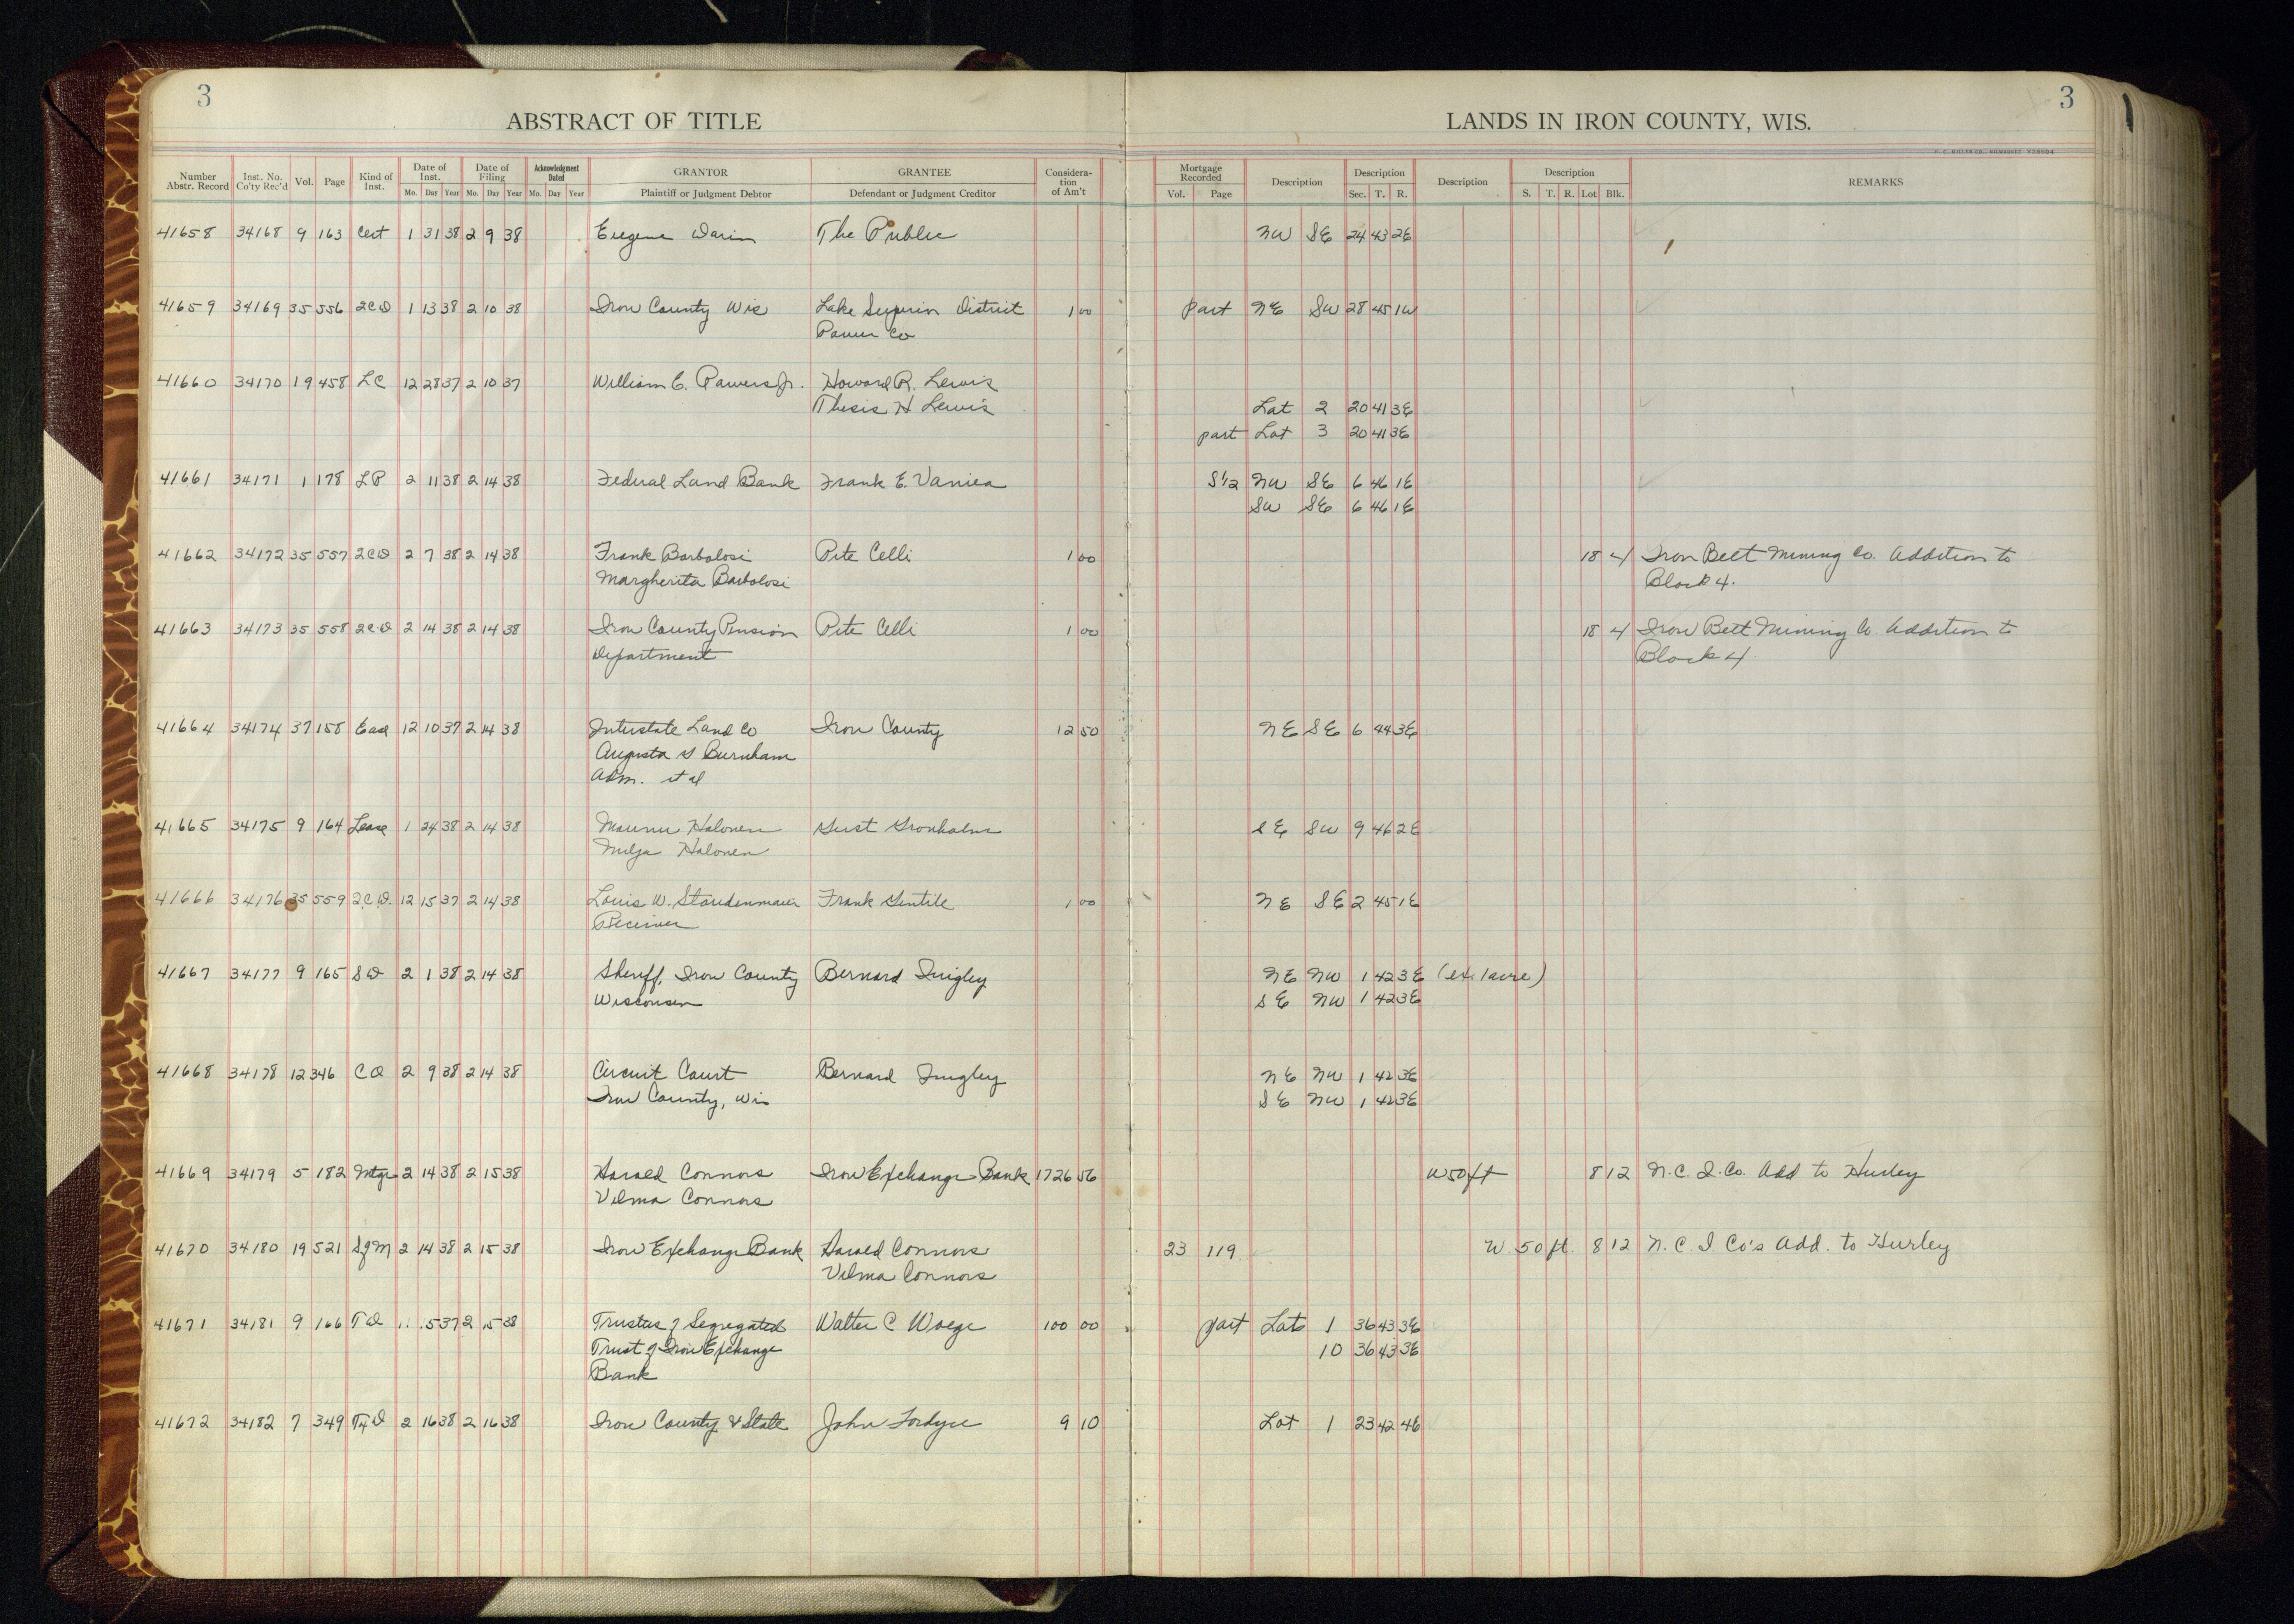 3
3
ABSTRACT OF TITLE
LANDS IN IRON COUNTY, WIS.
H. C. MILLER CO., MILWAUKEE
Number Abstr. Record Inst. No. Co'ty Rec'd Vol. Page Kind of Inst. Date of Inst. Mo. Day Year Date of Filing Mo. Day Year Acknowledgment Dated Mo. Day Year GRANTOR Plaintiff or Judgment Debtor GRANTEE Defendant or Judgment Creditor Considera-tion of Am't Mortgage Recorded Vol. Page Description Description Sec. T. R. Description Description S. T. R. Lot Blk. REMARKS
41658 34168 9 163 Cert 1 31 38 2 9 38 Eugene Darin The Public NW SE 24 43 2E
41659 34169 35 556 2CD 1 13 38 2 10 38 Iron County Wis Lake Superior District 1 00 part NE SW 28 45 1W
Power Co
41660 34170 19 458 LC 12 28 37 2 10 37 William E. Powers Jr. Howard R. Lewis
Thesis H Lewis Lot 2 20 41 3E
part Lot 3 20 41 3E
41661 34171 1 178 LP 2 11 38 2 14 38 Federal Land Bank Frank E. Vaniea S1/2 NW SE 6 46 1E
SW SE 6 46 1E
41662 34172 35 557 2CD 2 7 38 2 14 38 Frank Barbolosi Pete Celli 1 00 18 4 Iron Belt Mining Co. Addition to
Margherita Barbolosi Block 4.
41663 34173 35 558 2CD 2 14 38 2 14 38 Iron County Pension Pete Celli 1 00 18 4 Iron Belt Mining Co. Addition to
Department Block 4
41664 34174 37 158 Ease 12 10 37 2 14 38 Interstate Land Co Iron County 12 50 NE SE 6 44 3E
Augusta S Burnham
Adm. et al
41665 34175 9 164 Lease 1 24 38 2 14 38 Halonen Gust Gronholm SE SW 9 46 2E
Milja Halonen
41666 34176 35 559 2C.D. 12 15 37 2 14 38 Louis W. Staudenmaier Frank Gentile 1 00 NE SE 2 45 1E
Receiver
41667 34177 9 165 SD 2 1 38 2 14 38 Sheriff, Iron County Bernard Quigley NE NW 1 42 3E (ex. 1 acre)
Wisconsin SE NW 1 42 3E
41668 34178 12 346 CO 2 9 38 2 14 38 Circuit Court Bernard Quigley NE NW 1 42 3E
Iron County, Wis SE NW 1 42 3E
41669 34179 5 182 Mtge 2 14 38 2 15 38 Harold Connors Iron Exchange Bank 1726 56 W 50 ft 8 12 N.C.I.Co. Add to Hurley
Vilma Connors
41670 34180 19 521 SofM 2 14 38 2 15 38 Iron Exchange Bank Harold Connors 23 119 W. 50 ft. 8 12 N.C.I Co's Add. to Hurley
Vilma Connors
41671 34181 9 166 TD 15 37 2 15 38 Trustees of Segregated Walter C Woege 100 00 part Lots 1 36 43 3E
Trust of Iron Exchange 10 36 43 3E
Bank
41672 34182 7 349 TxD 2 16 38 2 16 38 Iron County & State John Fordyce 9 10 Lot 1 23 42 4E